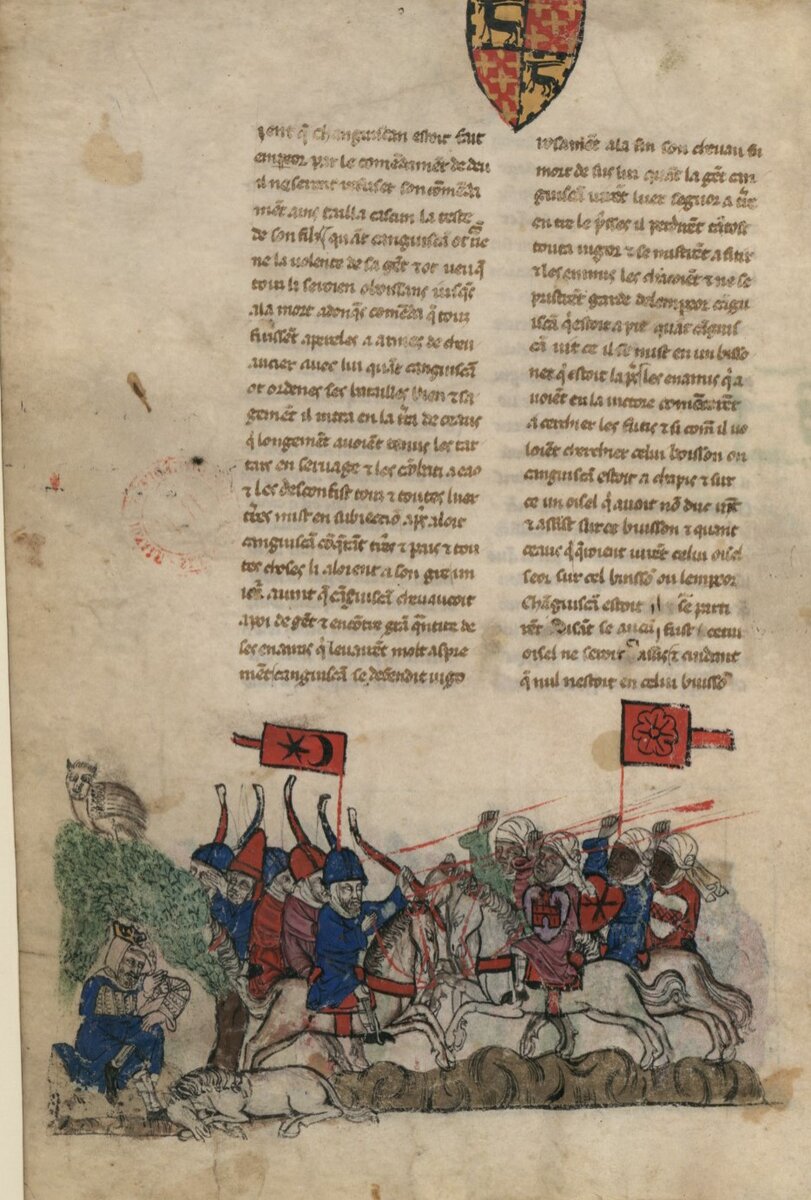 rent q̄ changuiscan estoit fait
empeor par le comēdimēt de deu
il ne seroit refuset son comēda
mēt ains tailla cascun la teste
de son fil / quāt canguiscā ot
ne la volente de sa gēt & ot veu q̄
tout li seroien oboissans iusq̄s
ala mort adonq̄s comēda q̄ tour
fuissēt apereles a armes de chev
aucier avec lui quāt canguiscā
ot ordenes ses batailles bien & sa
gemēt il intra en la de ceaus
q̄ longemēt avoiēt tenus les tar
tars en servage & les cōbati a eao
& les desconfist tous & toutes luer
mist en subiectiō apr̄s aloit
canguiscā cōq̄rāt & pais & tou
tes choses li aloient a son gre un
avint q̄ cāguiscā chevaucoit
a poi de gēt & encōtre grā q̄ntite de
ses enamis q̄ levarēt molt aspre
mēt canguiscā se defendit vigo
rosamēt ala fin son chevau fu
mort de sus lui quāt la gēt can
guiscā virēt luer segnor a
entre le il perdirēt tātost
touta vigor & se mistrēt a fuir
& les enimis les chacoiēt & ne se
pristrēt garde delempeor cāgu
iscā q̄ estoit a pie quāt cāguis
cā vit ce il se mist en un bisso
net q̄ estoit la les enamis q̄ a
voiēt eu la victore comēcarēt
a cercher les fuitis & si com il vo
loiēt cherchier celui boisson ou
canguiscā estoit a chapis & sur
ce un oisel q̄ avoit nō duc
& assist sur ce buisson & quant
ceaus q̄ q̄roient virēt celui oisel
seoir sur cel buissō ou lempeor
Chāguiscā estoit il sē parti
rēt Disāt se aucū fust cetui
oisel ne seroit assis & cuidant
q̄ nul nestoit en celui buissō